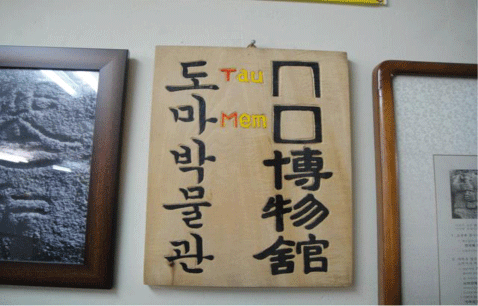 도마박물관
Tau
Mem
תם博物館